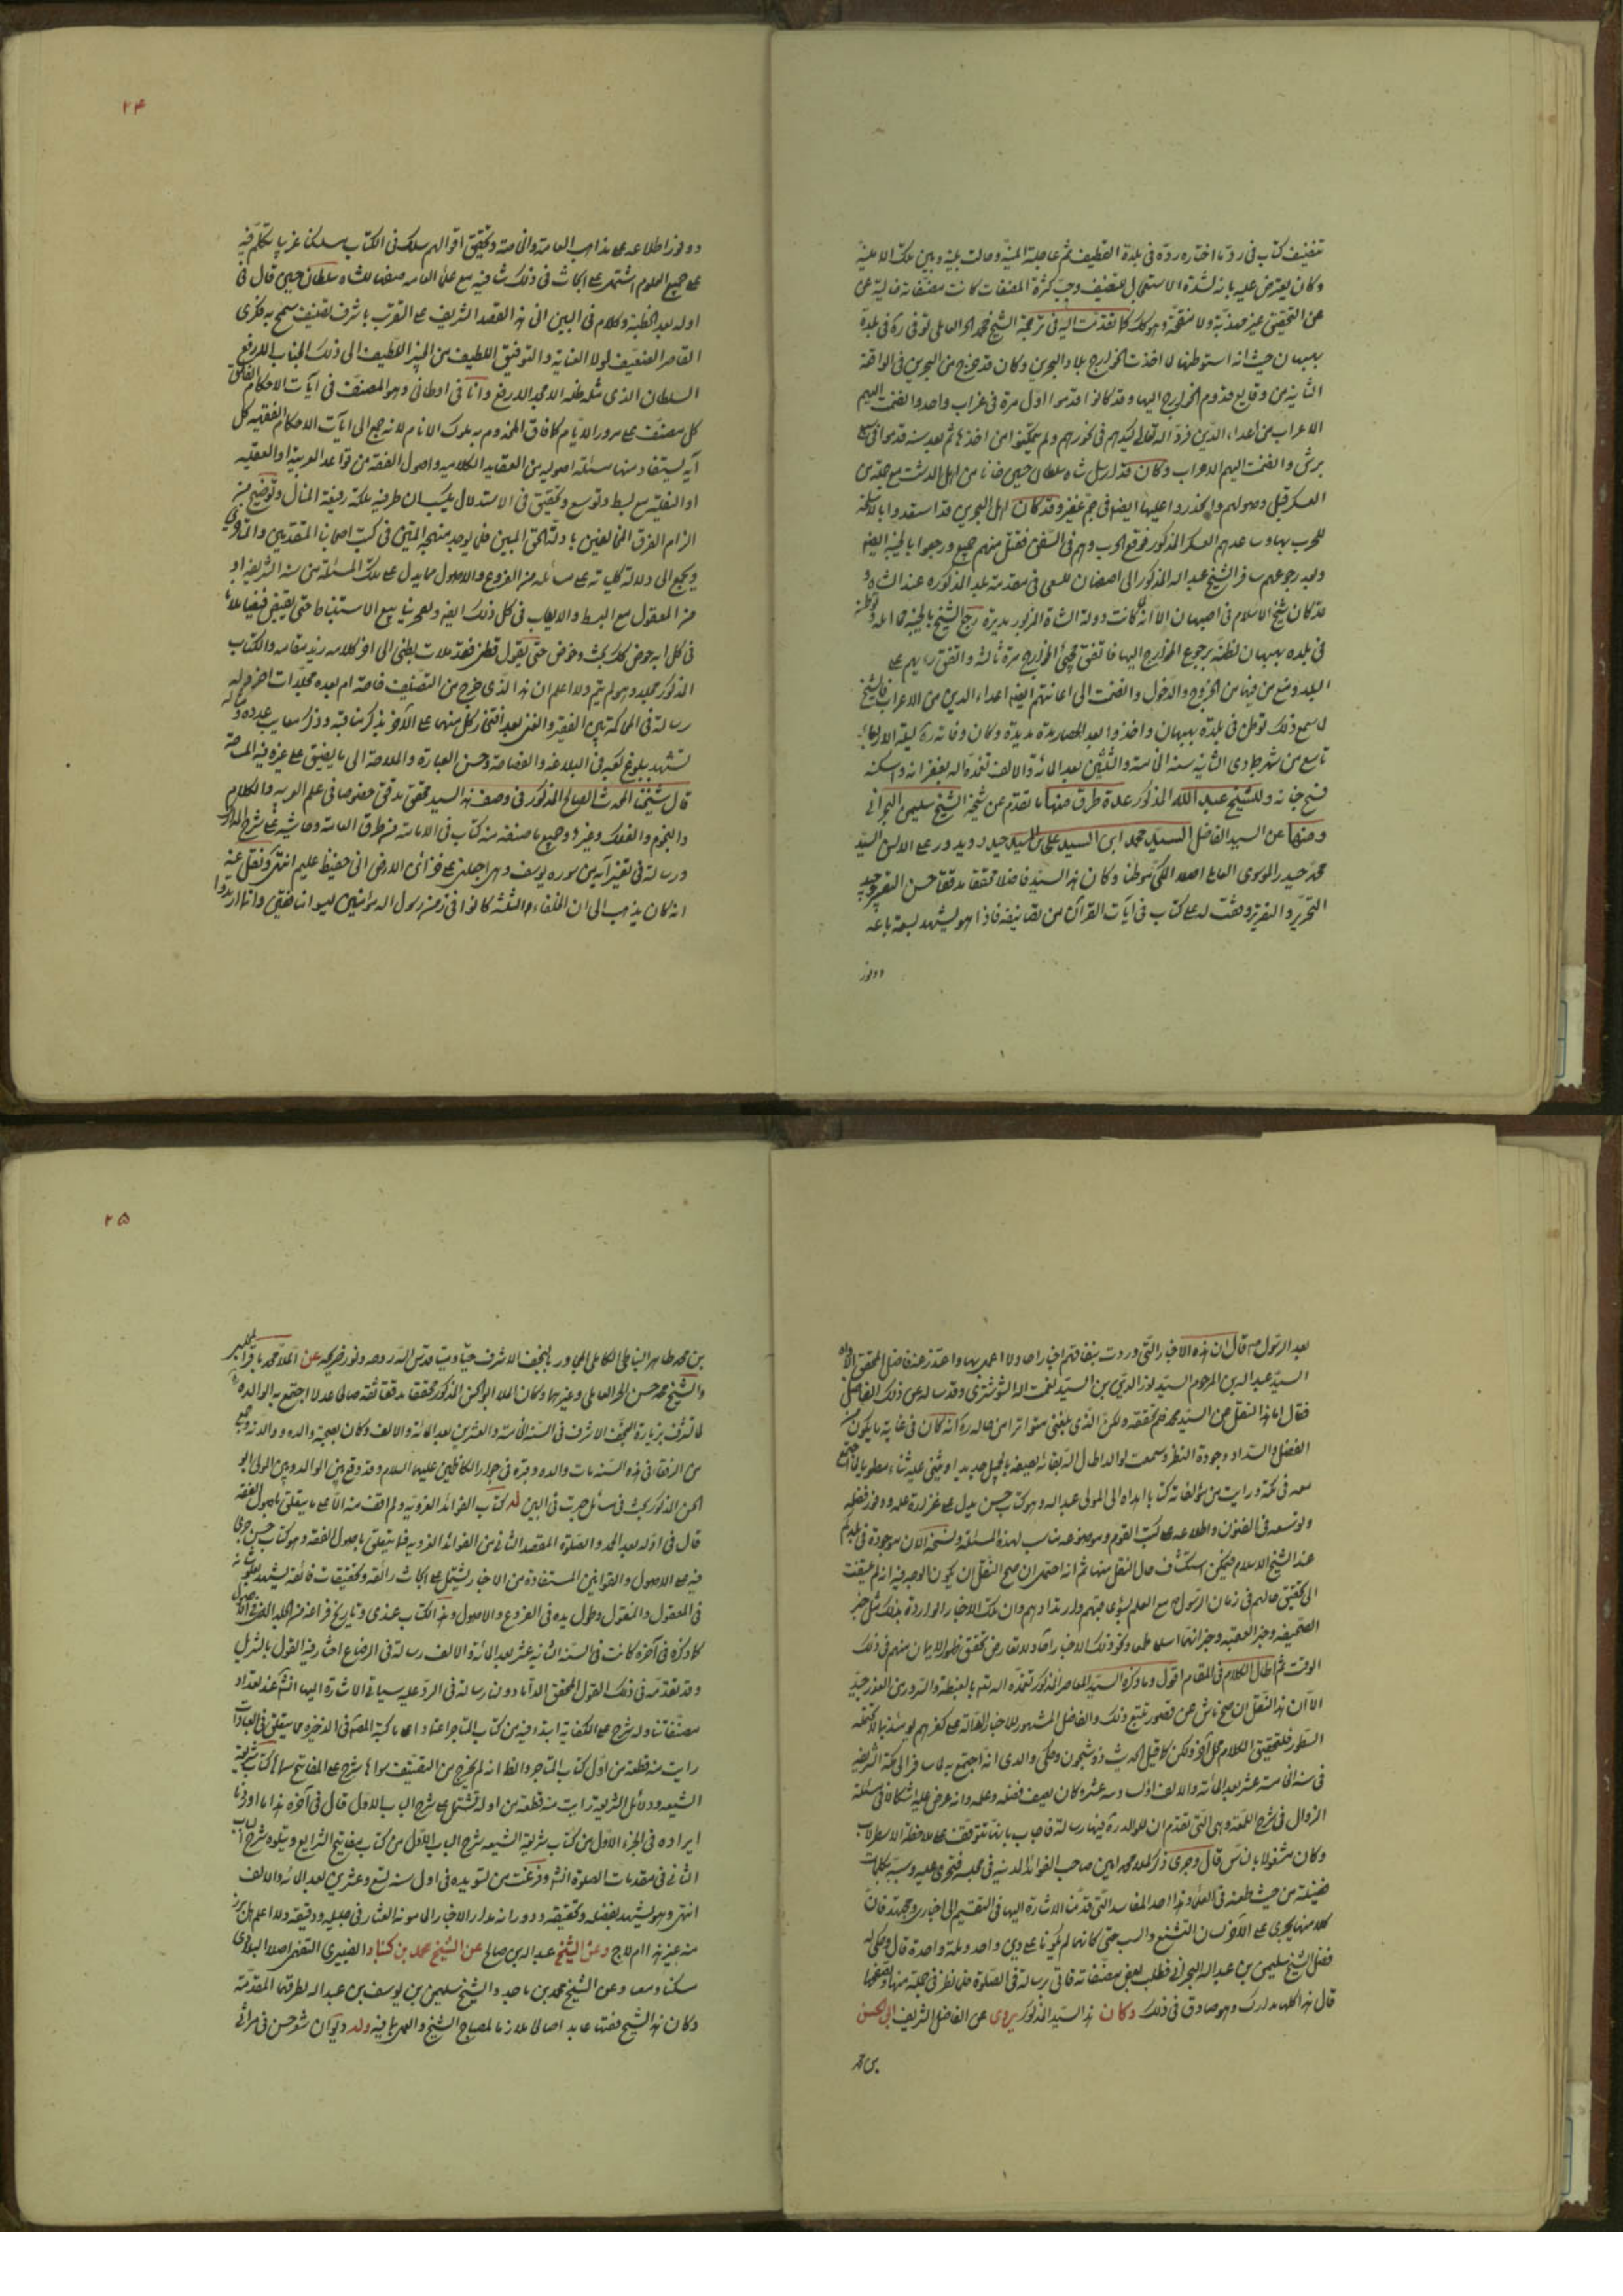 تصنيف كتاب في رد ما اختاره رده في بلدة القطيف ثم عاجلته المنية وحالت بينه وبين تلك الامنية
وكان يعترض عليه بانه لشدة الاستعجال للتصنيف وحب كثرة المصنفات كانت مصنفاته خالية عن
عن التحقيق غير مهذبة ولا منقحة وهو كذلك كما تقدمت اليه في ترجمة الشيخ محمد الحر العاملي توفي ره في بلدة
بهبهان حيث انه استوطنها لما اخذت الخوارج بلاد البحرين وكان قد خرج من البحرين في الواقعة
الثانية من وقايع قدوم الخوارج اليها وقد كانوا قدموا اول مرة في غراب واحد وانضمت اليهم
الاعراب من اعداء الدين فرد الله تعالى كيدهم في نحورهم ولم يتمكنوا من اخذها ثم بعد سنة قدموا في سبع
برش وانضمت اليهم الاعراب وكان قد ارسل شاه سلطان حسين خانا من اهل الدشت مع جملة من
العسكر قبل وصولهم وانحدروا عليها ايضا في جم غفير وقد كان اهل البحرين قد استعدوا بالاسلحة
للحرب بها وساعدهم العسكر المذكور فوقع الحرب وهم في السفن فقتل منهم جمع ورجعوا بالخيبة ايضا
وبعد رجوعهم سافر الشيخ عبد الله المذكور الى اصفهان للسعي في مقدمة بلد المذكورة عند الشاه و
قد كان شيخ الاسلام في اصبهان الا انه لما كانت دولة الشاة المزبور مدبرة رجع الشيخ بالخيبة مما امله وتوطن
في بلده بهبهان لظنه برجوع الخوارج اليها فاتفق مجئ الخوارج مرة ثالثة واتفق رأيهم على
البلد ومنع من فيها من الخروج والدخول وانضمت الى اعانتهم ايضا اعداء الدين من الاعراب فالشيخ
لما سمع ذلك توطن في بلدة بهبهان واخذوا البلد بعد المحاصرة مدة مديدة وكان وفاته ره ليلة الاربعاء
تاسع من شهر جمادى الثانيه سنه الخامسة والثلثين بعد المائة والالف تغمده الله بغفرانه واسكنه
فسيح جنانه وللشيخ عبد الله المذكور عدة طرق منها ما تقدم عن شيخه الشيخ سليمن البحراني
ومنها عن السيد الفاضل السيد محمد ابن السيد علي بن السيد حيدر ويدور على الالسن السيد
محمد حيدر الموسوي العاملي اصلا المكي موطنا وكان هذا السيد فاضلا محققا مدققا حسن التعبير وجيد
التحرير والتقرير وقفت له على كتاب في آيات القرآن من تصانيفه فاذا هو يشهد بسعة باعه
ووفور
۲۴
ووفور اطلاعه على مذاهب العامة والخاصة وتحقيق اقوالهم سلك في الكتاب مسلكا غريبا يتكلم فيه
على جميع العلوم اشتمل على ابحاث في ذلك شافيه مع علماء العامه صنفه للشاه سلطان حسين قال في
اوله بعد الخطبة وكلام في البين الى هذا القصد الشريف على التقرب باشرف تصنيف سمح به فكري
القاصر الضعيف لولا العناية والتوفيق اللطيف من الخبير اللطيف الى ذلك الجناب الارفع
السلطان الذي مثله ظله الامجد الارفع وانا في اوطاني وهو المصنف في آيات الاحكام الفائق
كل مصنف على مرور الايام كما فاق المخدوم به ملوك الانام لانه جمع الى آيات الاحكام الفقهيه كل
آيه يستفاد منها مسئلة اصوليه من العقايد الكلاميه واصول الفقه من قواعد العربية او العقليه
او النقليه مع بسط وتوسع وتحقيق في الاستدلال
الزام الفرق المخالفين بادلة الحق المبين فلن يوجد منهجه المتين في كتب اصحابنا المتقدمين والمتأخرين
من المعقول مع البسط والايعاب في كل ذلك ايضا
المذكور مجلد وهو لم يتم ولا اعلم ان هذا الذي خرج من التصنيف خاصة ام بعده مجلدات اخر وله
رسالة في المحاكمة بين الفقير والغني بعد افتخار كل منهما على الآخر بذكر مناقبه وذكر معايب عدوه
تشهد ببلوغ كعبه في البلاغة والفصاحة وحسن العبارة والملاحة الى ما يضيق على غيره فيه المساحة
قال شيخنا المحدث الصالح المذكور في وصف هذا السيد محقق مدقق خصوصا في علم العربيه والكلام
والنجوم والفلك وغيرها وجميع ما صنفه منه كتاب في الامامة من طرق العامة وحاشيه على شرح المدارك
ورسالة في تفسير آية من سوره يوسف وهي اجعلني على خزائن الارض اني حفيظ عليم انتهى ونقل عنه
انه كان يذهب الى ان الخلفاء الثلثة كانوا في زمن رسول الله مؤمنين ليسوا منافقين وانما ارتدوا
بعد الرسول ص قال ان هذه الاخبار التي وردت بنفاقهم اخبار احاد ولا اعمل بها واعتذر عنه فاضل المحقق الاواه
السيد عبد الله بن المرحوم السيد نور الدين بن السيد نعمت الله الشوشتري وقد سئل عن ذلك الفاضل
فقال اما هذا النقل عن السيد محمد فلم نحققه ولكن الذي بلغني متواترا من حاله ره انه كان في غاية ما يكون من
الفضل والسداد وجودة النظر وسمعت الوالد اطال الله بقائه يصفه بالجميل جدا ويثني عليه ثناء مطريا لما اجتمع
معه في مكة ورايت من مؤلفاته كتابا اهداه الى المولى عبد الله وهو كتاب حسن يدل على غزارة علمه ووفور فضله
وتوسعه في الفنون واطلاعه على كتب القوم وموضوعه مناسب لهذه المسئلة ونسخه الان موجودة في بلدكم
عند الشيخ الاسلام فيمكن استكشاف حال النقل منها ثم انه احتمل ان صح النقل ان يكون الوجه فيه انه لم يلتفت
الى تحقيق حالهم في زمان الرسول ص مع العلم بسوء عاقبتهم وارتدادهم وان تلك الاخبار الواردة بذلك مثل خبر
الصحيفه وخبر العقبه وخبر انهما اسلما طمعا ونحو ذلك الاخبار آحاد ولا تعارض تحقق ظهور الايمان منهم في ذلك
الوقت ثم اطال الكلام في المقام اقول وما ذكره السيد المعاصر المذكور تغمده الله تعالى بالغبطة والسرور من العذر جيد
الا ان هذا النقل ان صح ناش عن قصور تتبع ذلك الفاضل المشهور للاخبار الدالة على كفرهم يومئذ
السطور فلتحقيق الكلام محل آخر ولكن كما قيل الحديث ذو شجون وحكى والدي انه اجتمع به لما سافر الى مكة الشريفه
في سنه الخامسة عشر بعد المائه والالف او السادسه عشر وكان يصف فضله وعلمه وانه عرض عليه اشكالا في مسئلة
الزوال في شرح اللمعة وهي التي تقدم ان للوالد ره فيها رسالة فاجاب بانها تتوقف على ملاحظة الاسطرلاب
وكان مشغولا بالناس قال وجرى ذكر الملا محمد امين صاحب الفوائد المدنيه في مجلسه فتجرى عليه وسبه بكلمات
فضيعة من حيث طعنه في العلماء وهذا احد المفاسد التي قدمنا الاشارة اليها في التقسيم الى اخباري ومجتهد فان
كلا منهما يجري على الآخر لسان التشنيع والسب حتى كانهما لم يكونا على دين واحد وملة واحدة قال وحكى له
فضل الشيخ سليمن بن عبد الله البحراني فطلب بعض مصنفاته فاتي رسالة في الصلوة فلما نظر في جملة منها وتصفحها
قال هذا كلها مدارك وهو صادق في ذلك وكان هذا السيد المذكور يروي عن الفاضل الشريف ابي الحسن
بن محمد
۲۵
بن محمد طاهر النباطي العاملي المجاور بالنجف الاشرف حيا وميتا قدس الله روحه ونور ضريحه عن الملا محمد باقر المجلسي
والشيخ محمد حسن الحر العاملي وغيرهما وكان الملا ابو الحسن المذكور محققا مدققا ثقة صالحا عدلا اجتمع به الوالد ره
لما تشرف بزيارة النجف الاشرف في السنة الخامسة والعشرين بعد المائة والالف وكان بصحبة والده ووالدته وجمع
من الرفقاء في هذه السنة مات والده وقبره في جوار الكاظمين عليهما السلام وقد وقع بين الوالد وبين المولى ابو
الحسن المذكور بحث في مسائل جرت في البين له كتاب الفوائد الغروية ولم اقف منه الا على ما يتعلق باصول الفقه
قال في اوله بعد الحمد والصلوة المقصد الثاني من الفوائد الغرويه فيما يتعلق باصول الفقه وهو كتاب حسن جرى
فيه على الاصول والقوانين المستفادة من الاخبار يشتمل على ابحاث رائقة وتحقيقات فائقه يشهد بعلو شانه
في المعقول والمنقول وطول يده في الفروع والاصول وهذا الكتاب عندي وتاريخ فراغه من المجلد المذكور
كما ذكره في آخره كانت في السنة الثانيه عشر بعد المائة والالف رسالة في الرضاع اختار فيها القول بالتنزيل
وقد تقدمه في ذلك القول المحقق الداماد ولنا رسالة في الرد عليه سياتي الاشارة اليها انشاء الله عند تعداد
مصنفاتنا وله شرح على الكفايه ابتدا فيه من كتاب المتاجر اعتمادا على ما كتبه المصنف في الذخيره مما يتعلق في العبادات
رايت منه قطعة من اول كتاب المتاجر والظ انه لم يخرج من التصنيف سواها شرح على المفاتيح سماه كتاب شريعة
الشيعه ودلائل الشريعة رايت منه قطعة من اوله تشتمل على شرح الباب الاول قال في آخره هذا ما اردنا
ايراده في الجزء الاول من كتاب شريعة الشيعه شرح الباب الاول من كتاب مفاتيح الشرايع ويتلوه شرح الباب
الثاني في مقدمات الصلوة انشاء وفرغت من تسويده في اول سنة تسع وعشرين بعد المائه والالف
انتهى وهو يشهد بفضله وتحقيقه ودورانه مدار الاخبار المامونة العثار في جليله ودقيقه ولا اعلم هل برز
منه غير هذا ام لا ح وعن الشيخ عبد الله بن صالح عن الشيخ محمد بن كنبار الضبيري النعيمي اصلا البلادي
سكنا وسعا وعن الشيخ محمد بن ماجد والشيخ سليمن بن يوسف بن عبد الله بطرقهما المتقدمة
وكان هذا الشيخ فقيها عابدا صالحا ملازما لمصباح الشيخ والعمل بما فيه وله ديوان شعر حسن في مراثي